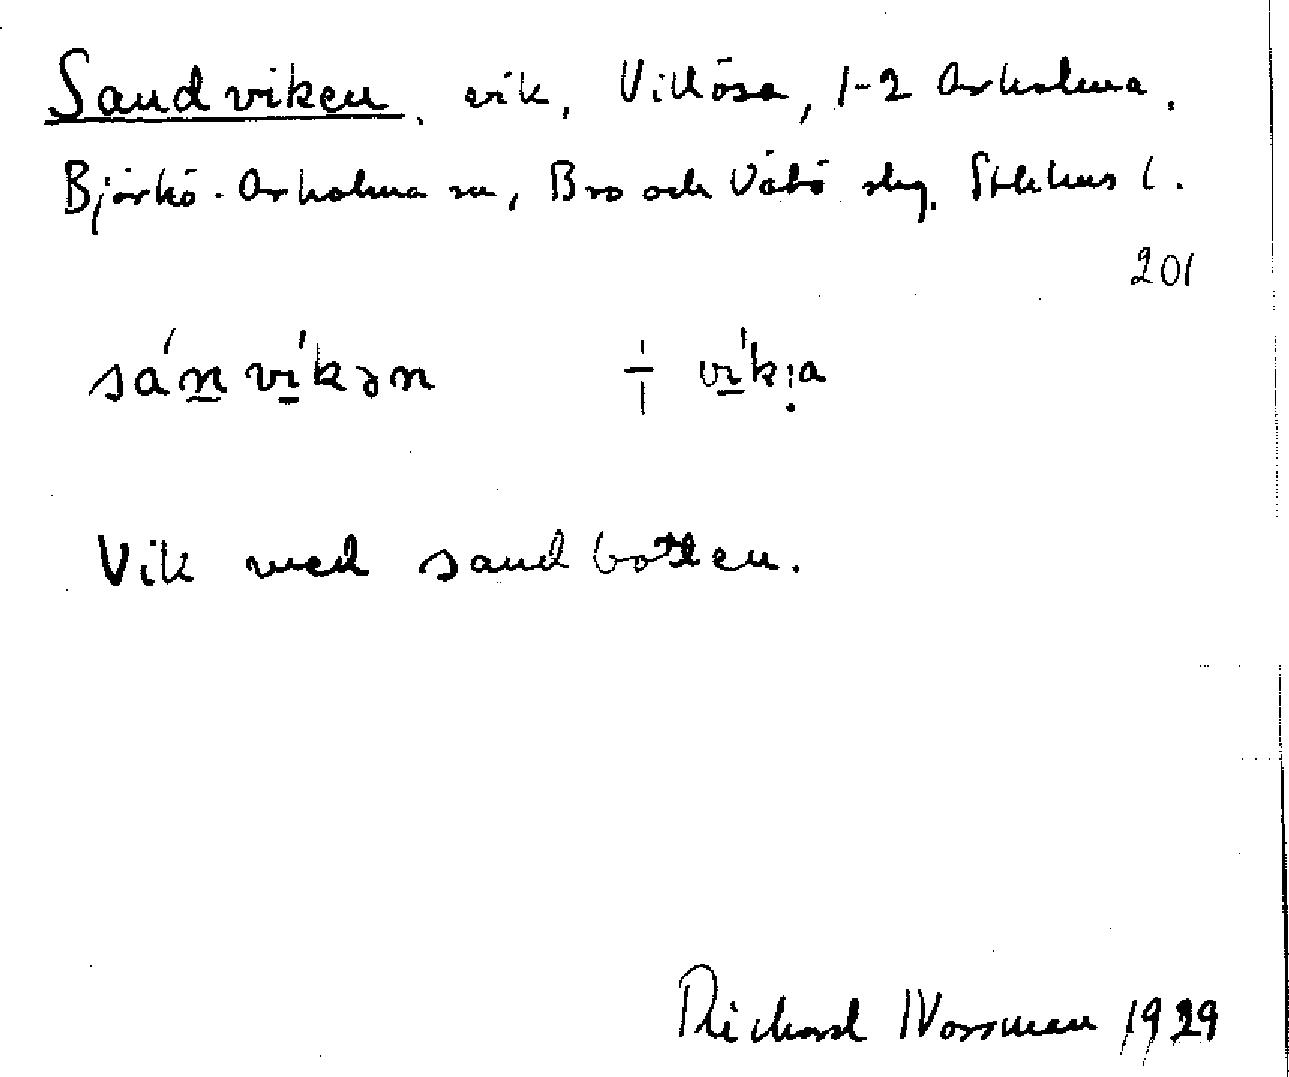 Sandviken, vik, Villösa, 1-2 Arholma,
Björkö-Arholma sn, Bro och Vätö skg, Sthlms l.
201
sán̲ vı̲́kən ÷ vı̲́k;a
Vik med sandbotten.
Richard Norrman 1929